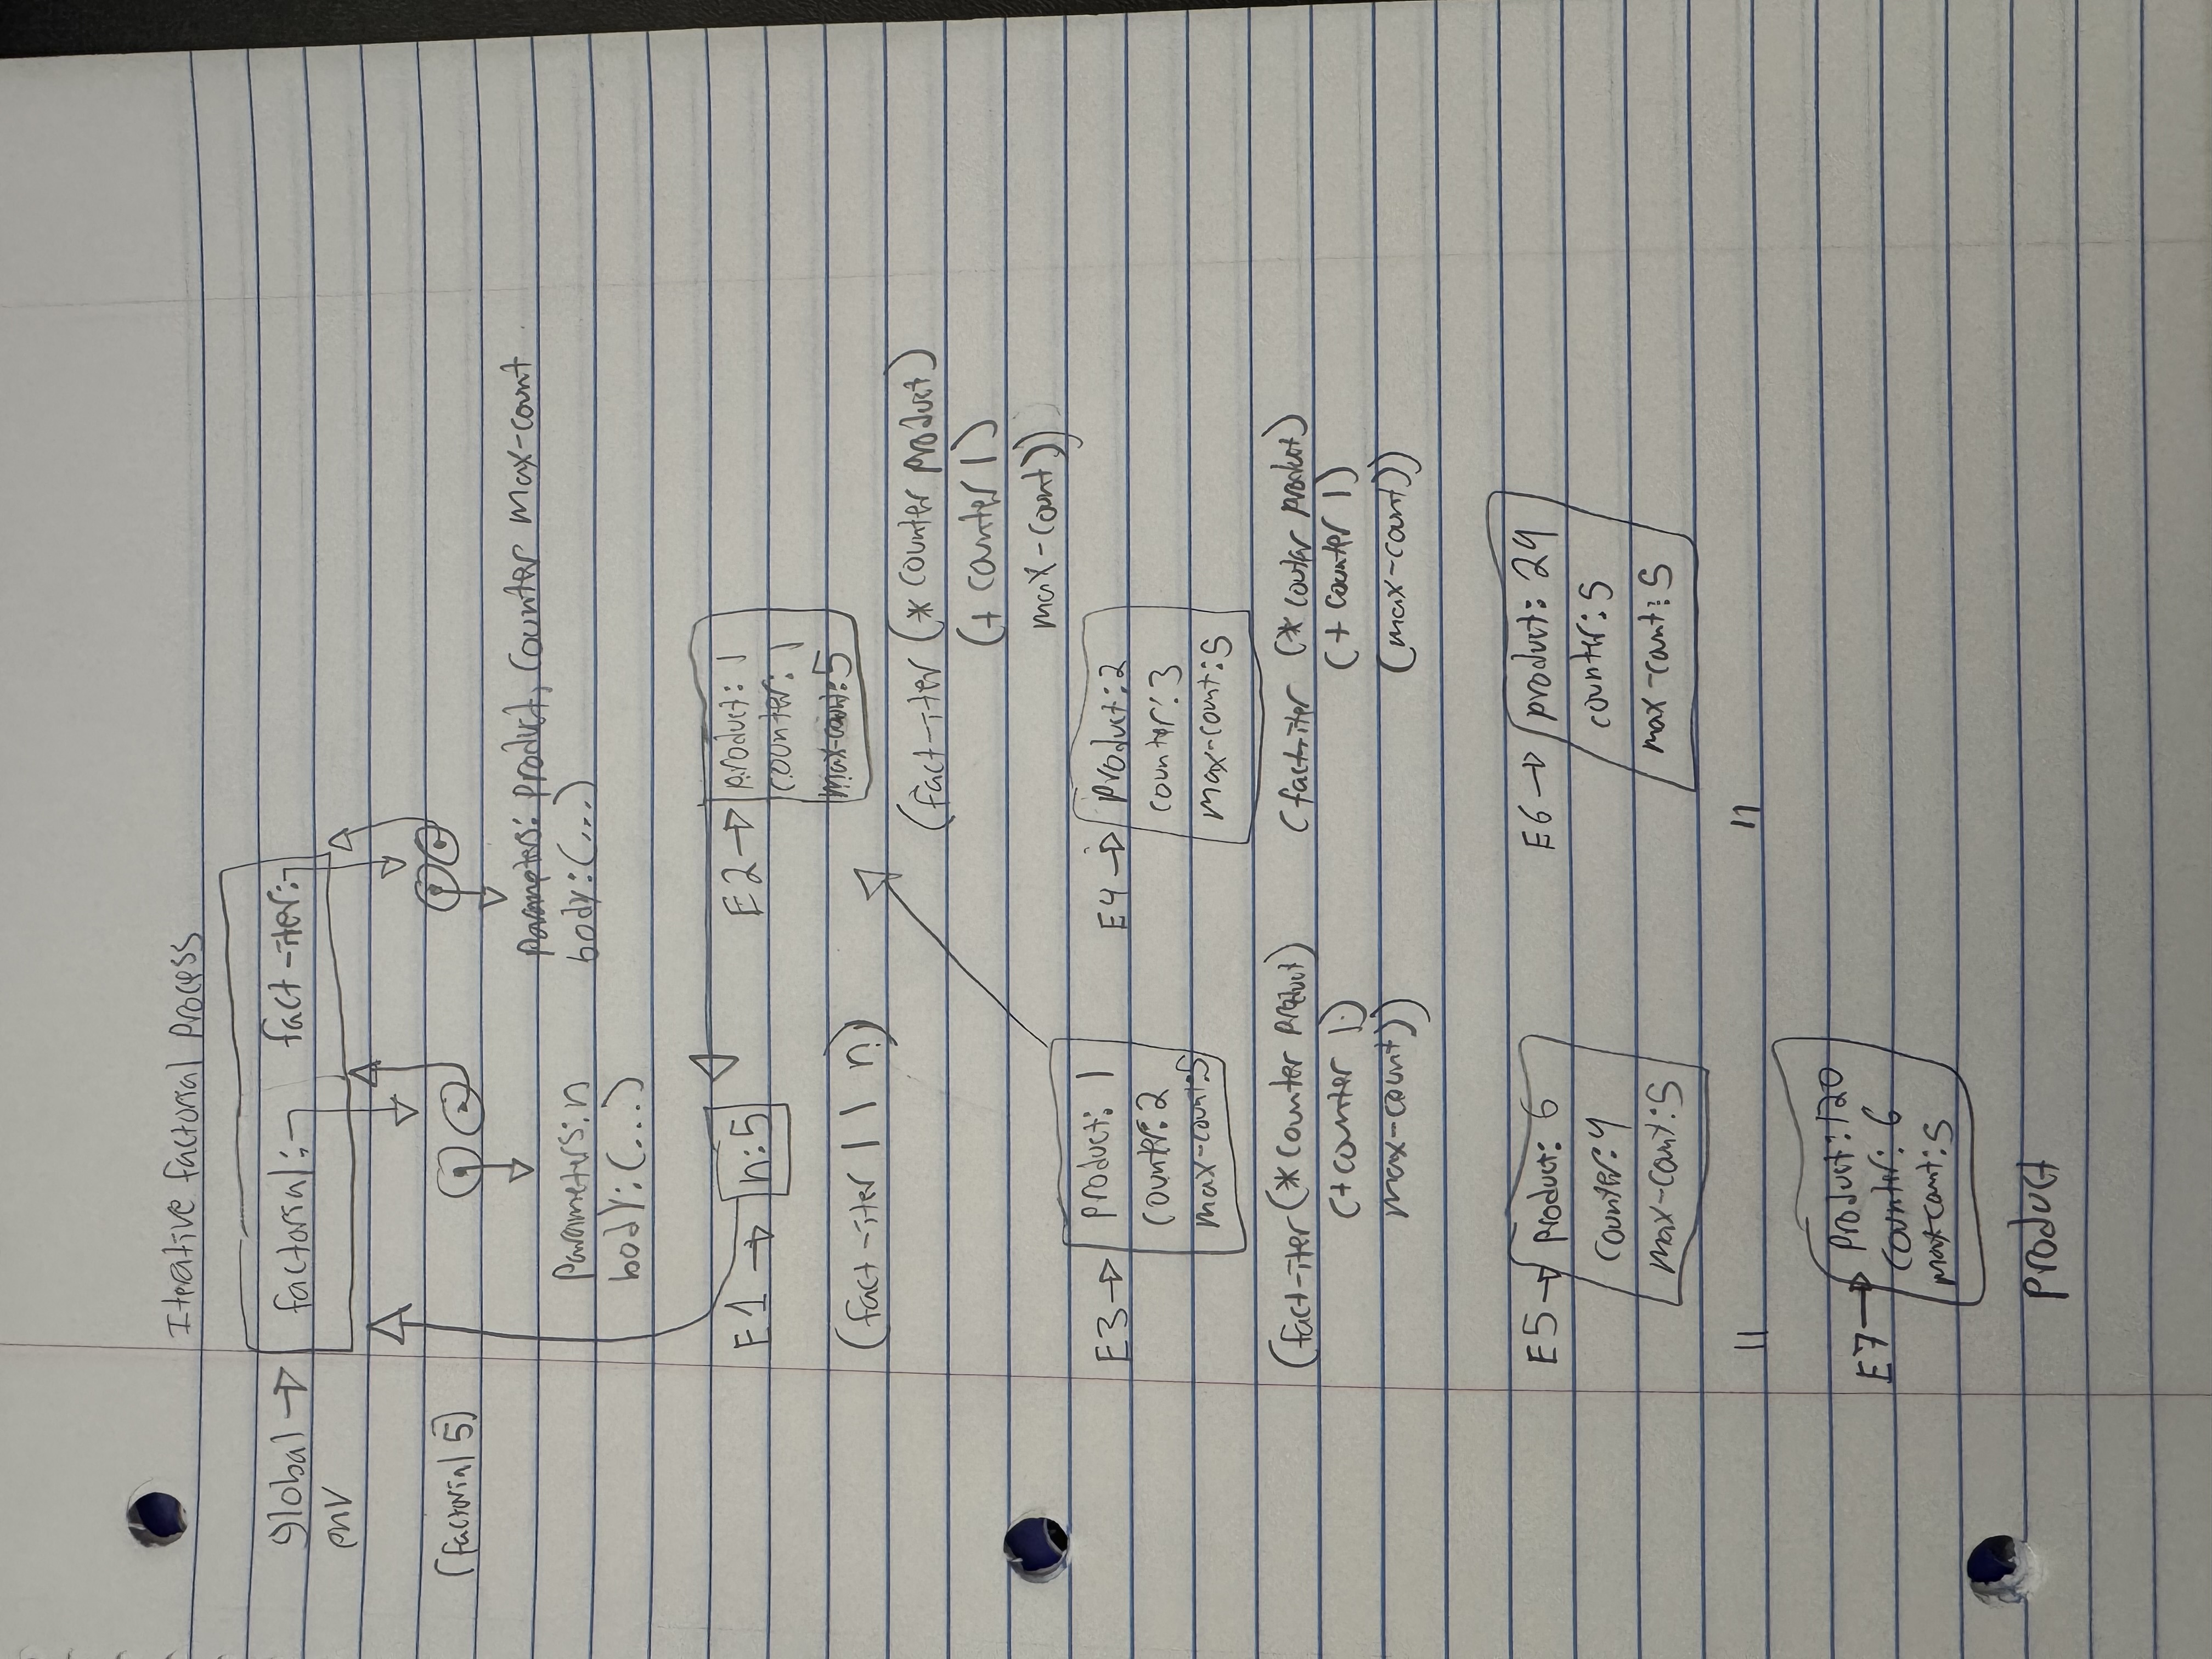 Iterative factorial process
global env
factorial: fact-iter:
(factorial 5)
Parameters: n
body: (...)
Parameters: product, counter max-count
body: (...)
E1
n: 5
(fact-iter 1 1 n)
E2
product: 1
counter: 1
max-count: 5
(fact-iter (* counter product)
(+ counter 1)
max-count))
E3
product: 1
counter: 2
max-count: 5
(fact-iter (* counter product)
(+ counter 1)
max-count))
E4
product: 2
counter: 3
max-count: 5
(fact-iter (* couter product)
(+ counter 1)
(max-count))
E5
product: 6
counter: 4
max-count: 5
11
E6
product: 24
counter: 5
max-count: 5
11
E7
product: 120
counter: 6
max-count: 5
product